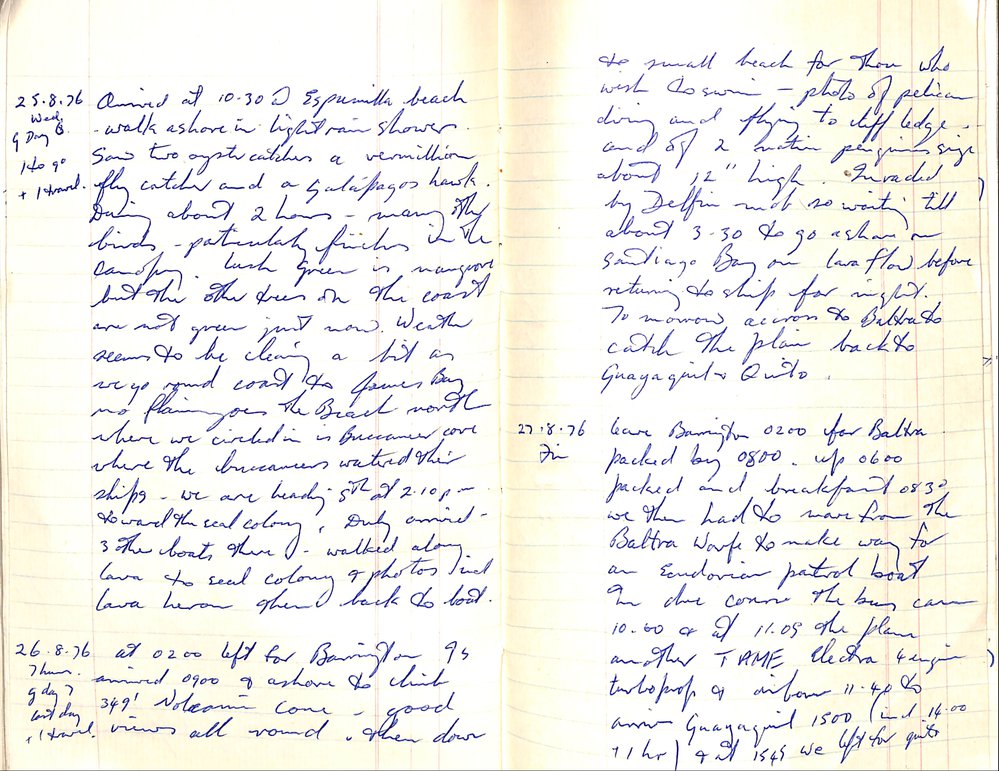 25.8.76
Wed.
G Day 6.
1 to go
+ 1 travel.
Arrived at 10.30 Espumilla beach
- walk ashore in light rain showers.
Saw two oyster catchers a vermillion
fly catcher and a Galápagos hawk.
During about 2 hours - many other
birds - particularly finches in the
canopy. Lush green is mangrove
but the other trees on the coast
are not green just now. Weather
seems to be clearing a bit as
we go round coast to James Bay
no flamingoes the Beach north
where we circled in is Buccaneer cove
where the buccaneers watered their
ships - we are heading Sth at 2.10 pm
toward the seal colony. Duly arrived -
3 other boats there - walked along
lava to seal colony & photos incl
lava heron then back to boat.
26.8.76
Thurs.
G day 7
last day
+ 1 travel.
at 0200 left for Barrington Is
arrived 0900 & ashore to climb
349' Volcanic cone - good
views all round. then down
to small beach for those who
wish to swim - photo of pelican
diving and flying to cliff ledge.
and of 2 penguins
about 12" high. Invaded
by Delfin mob so waiting till
about 3-30 to go ashore on
Santiago Bay on lava flow before
returning to ship for night.
Tomorrow accross to Baltra to
catch the plain back to
Guayaquil & Quito.
27.8.76
Fri
leave Barrington 0200 for Baltra
packed by 0800. up 0600
packed and breakfast 0830
we then had to move from the
Baltra Warfe to make way for
an Ecudorian patrol boat
In due course the bus came
10.00 & at 11.05 the plane
another TAME Electra 4 engine
turboprop & airbour 11.40 to
arrive Guayaquil 1500 (incl 14.00
+ 1 hr) & at 1545 we left for quito